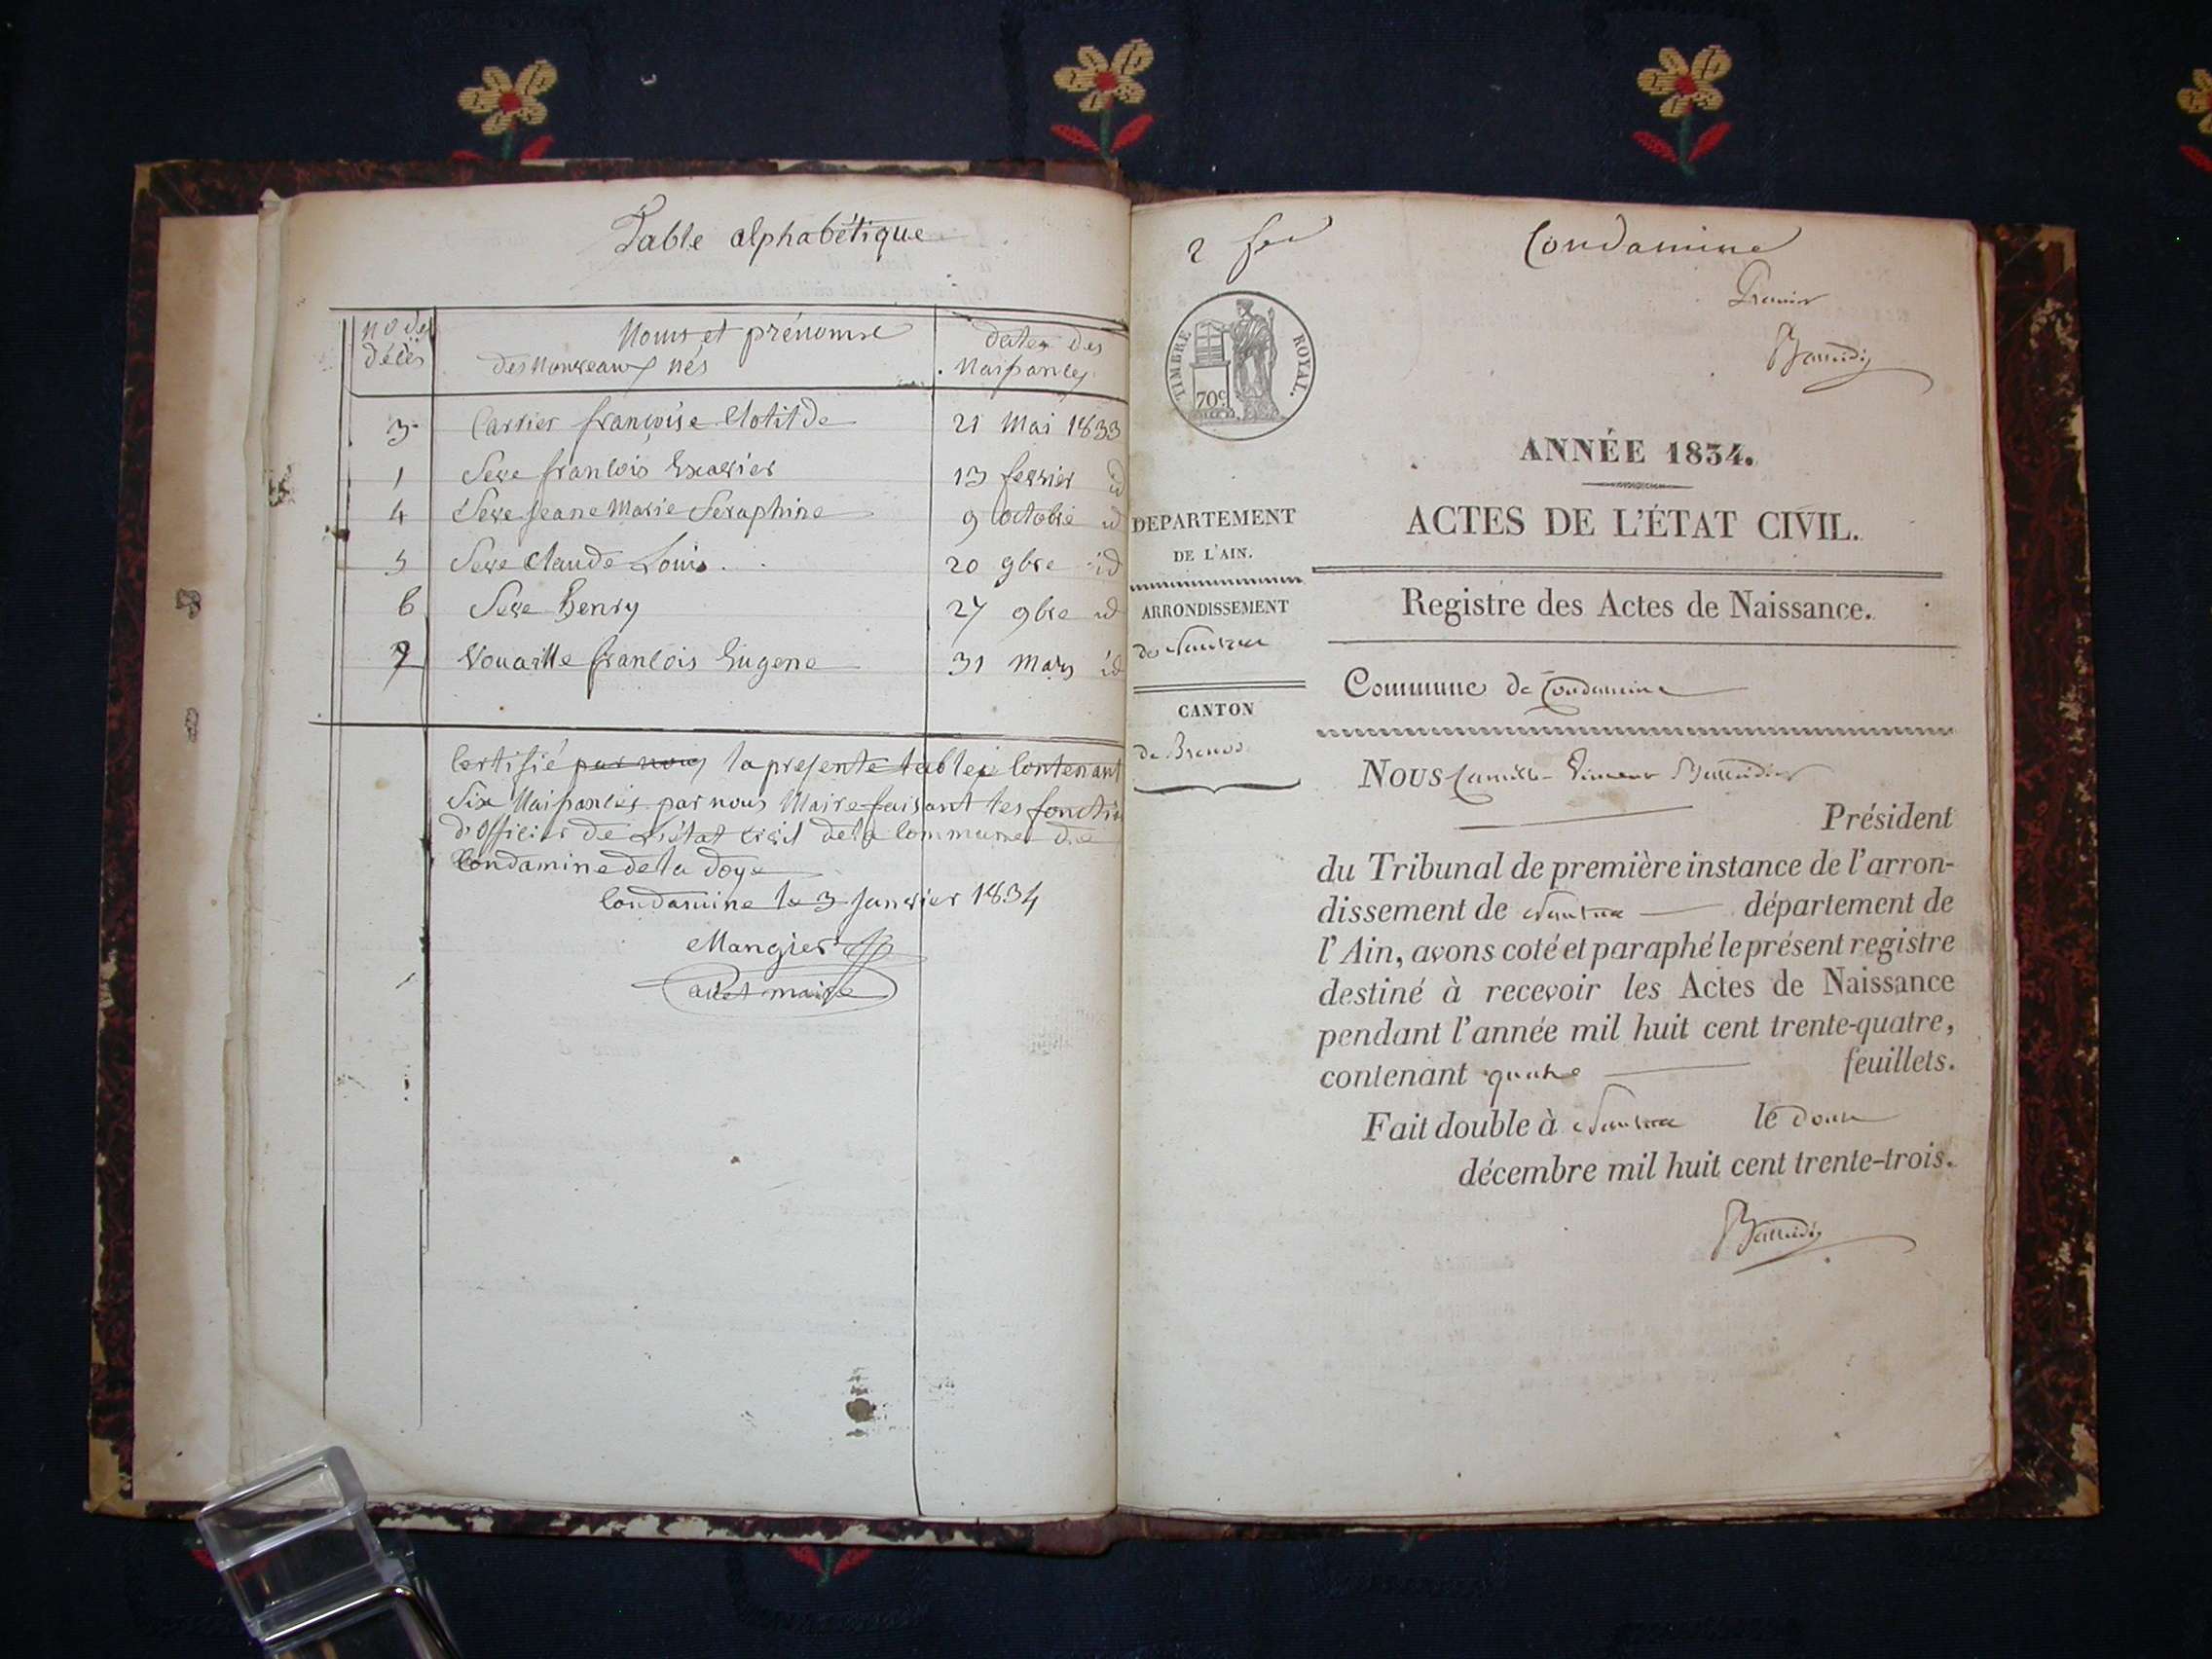 Table alphabétique
No des
décès
Noms et prénoms
des Nouveaux nés
dates des
Naissances
3 Carrier françoise Clotilde 21 Mai 1833
1 Seve francois Exavier 13 fevrier id
4 Seve Jeane Marie Seraphine 9 Octobre id
5 Seve Claude Louis 20 9bre id
6 Seve henry 27 9bre id
2 Vouaille francois Eugene 31 Mars id
Certifié par nous la presente table contenant
Six Naissances par nous Maire faisant les fonctio
d'Officier de L'état Civil de la Commune de
Condamine de la doye
Condamine le 3 Janvier 1834
Mangier
maire
2 fev
Condamine
Premier
TIMBRE ROYAL.
70c
ANNÉE 1834.
ACTES DE L'ÉTAT CIVIL.
Registre des Actes de Naissance.
DEPARTEMENT
DE L'AIN.
ARRONDISSEMENT
de Nantua
CANTON
de Brenod
Commune de Condamine
NOUS Camille
Président
du Tribunal de première instance de l'arron-
dissement de Nantua département de
l'Ain, avons coté et paraphé le présent registre
destiné à recevoir les Actes de Naissance
pendant l'année mil huit cent trente-quatre,
contenant quatre feuillets.
Fait double à Nantua le douze
décembre mil huit cent trente-trois.